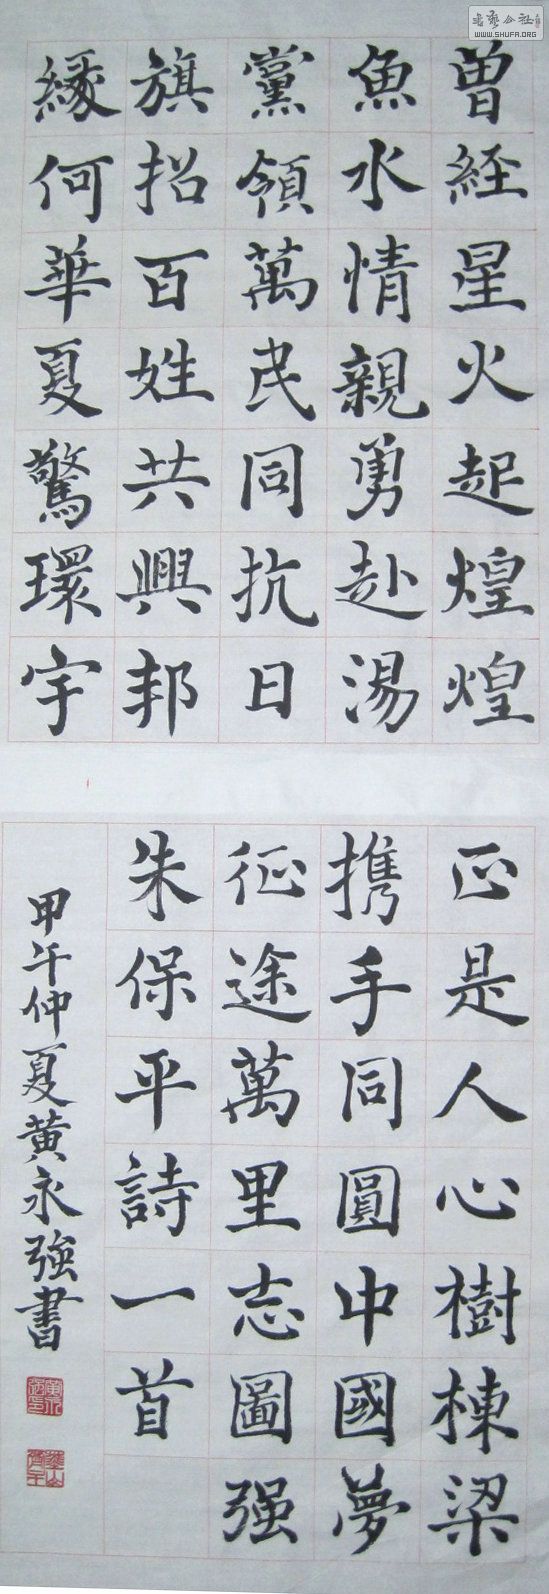 曾経星火起煌煌
魚水情親勇赴湯
黨領萬民同抗日
旗招百姓共興邦
緣何華夏驚環宇
正是人心樹棟梁
携手同圓中國夢
征途萬里志圖强
朱保平詩一首
甲午仲夏黄永強書
WWW.SHUFA.ORG